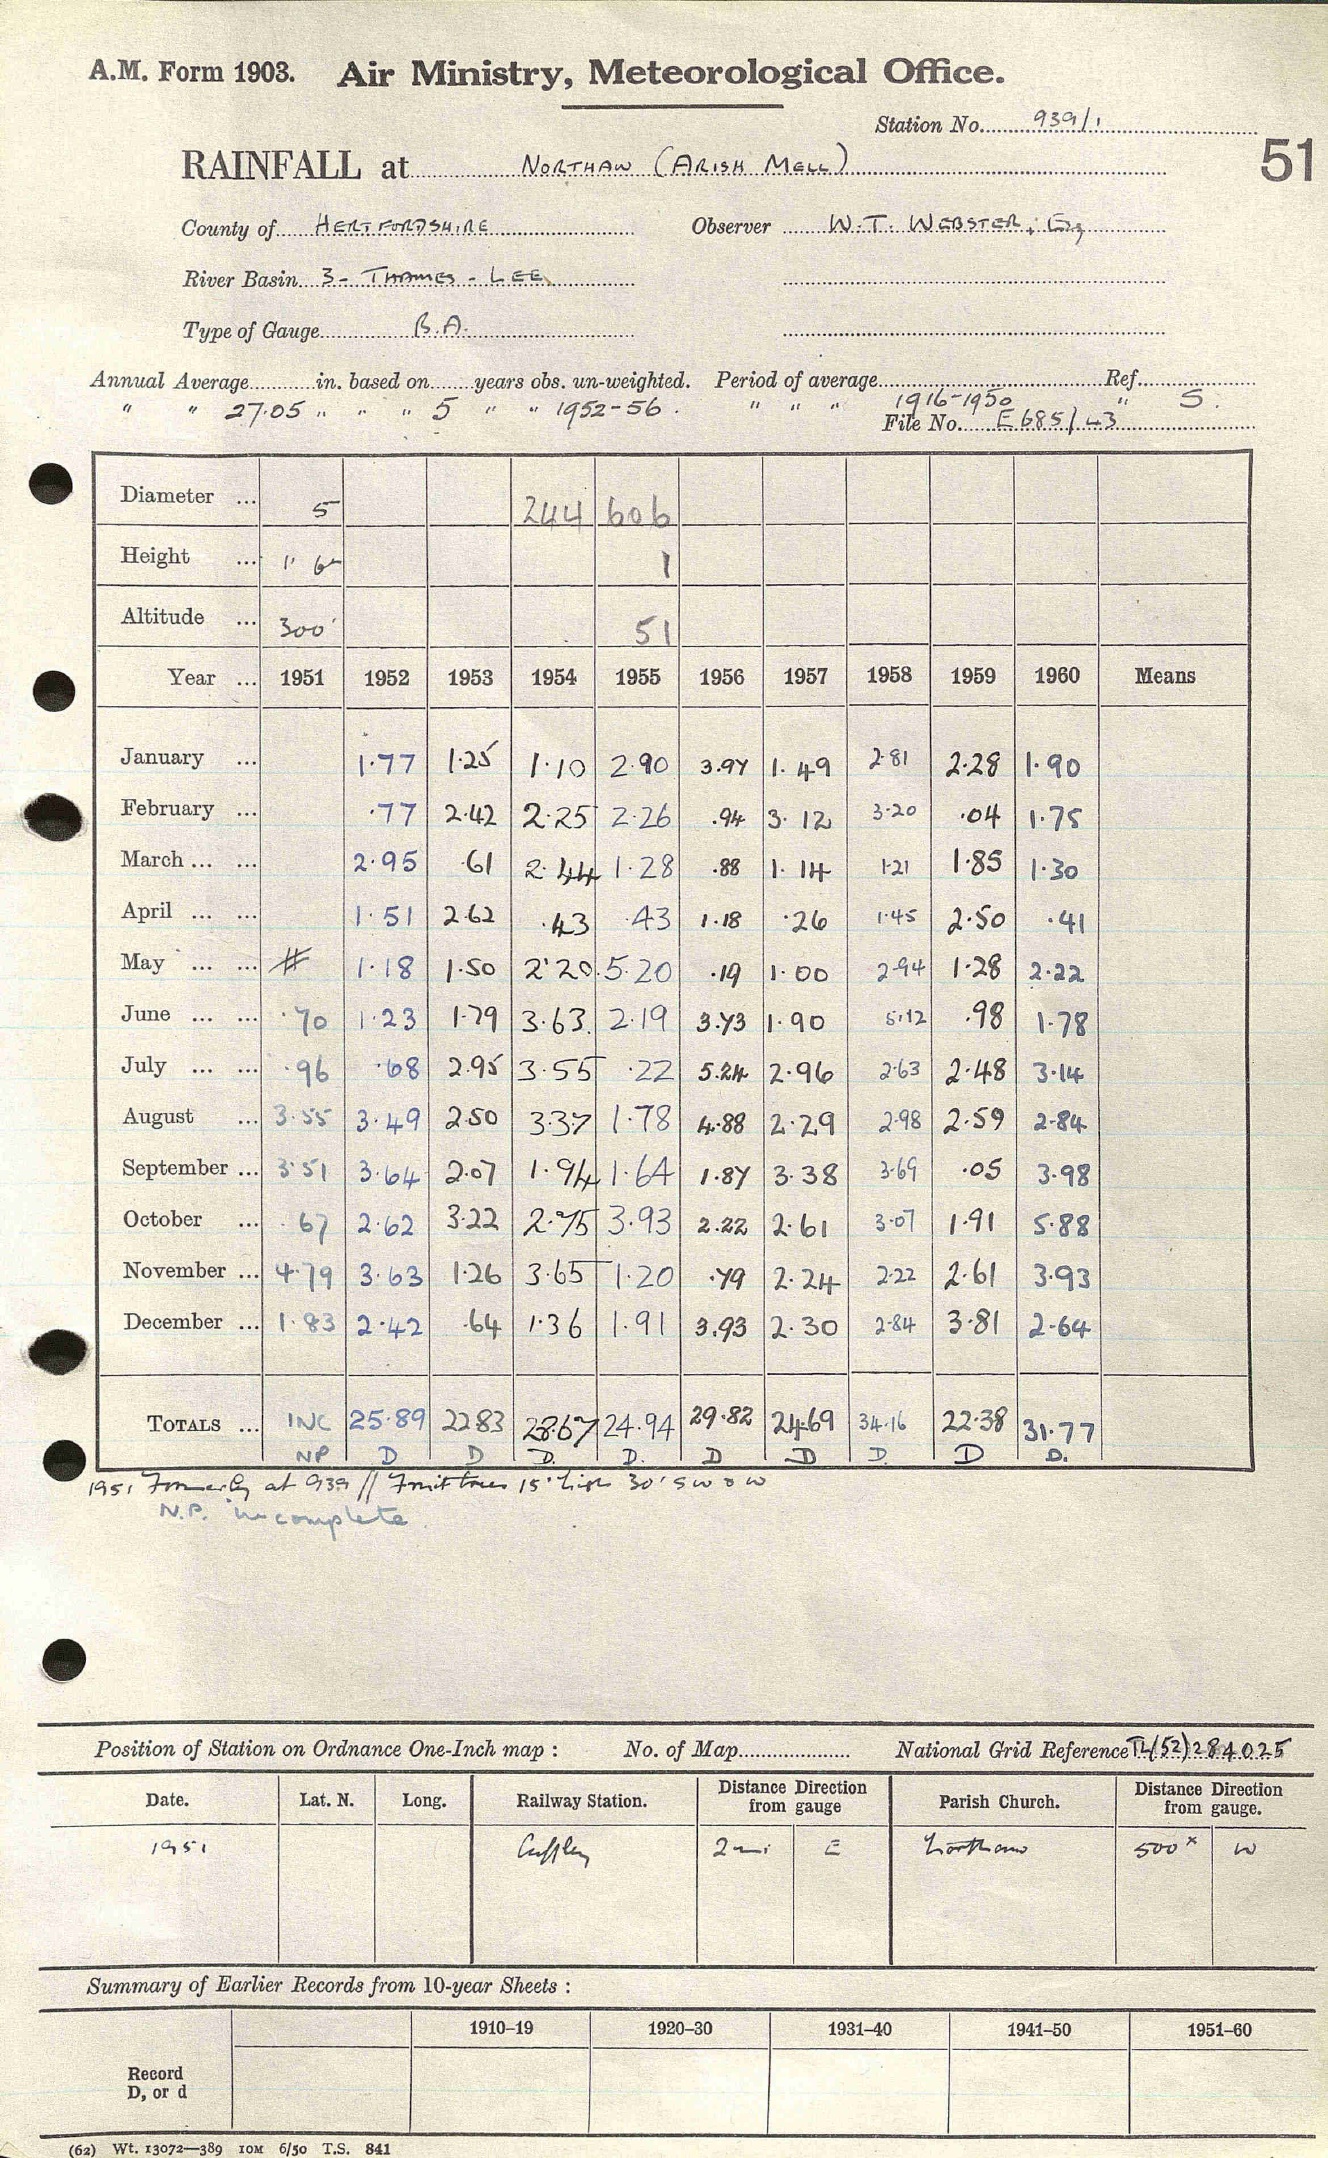 A.M. Form 1903. Air Ministry, Meteorological Office.
Station No. 939/1
51
RAINFALL at NORTHAW (ARISH MELL)
County of HERTFORDSHIRE Observer W.T. WEBSTER, Esq
River Basin 3 - THAMES - LEE
Type of Gauge B.A.
Annual Average in. based on years obs. un-weighted. Period of average Ref.
" " 27.05 " " " 5 " " 1952-56. " " " 1916-1950 " S.
File No. E685/43
Diameter ... 5 244 606
Height ... 1' 6" 1
Altitude ... 300' 51
Year ... 1951 1952 1953 1954 1955 1956 1957 1958 1959 1960 Means
January ... 1.77 1.25 1.10 2.90 3.97 1.49 2.81 2.28 1.90
February ... .77 2.42 2.25 2.26 .94 3.12 3.20 .04 1.75
March ... ... 2.95 .61 2.44 1.28 .88 1.14 1.21 1.85 1.30
April ... ... 1.51 2.62 .43 .43 1.18 .26 1.45 2.50 .41
May ... ... # 1.18 1.50 2.20 5.20 .19 1.00 2.94 1.28 2.22
June ... ... .70 1.23 1.79 3.63 2.19 3.73 1.90 5.12 .98 1.78
July ... ... .96 .68 2.95 3.55 .22 5.24 2.96 2.63 2.48 3.14
August ... 3.55 3.49 2.50 3.37 1.78 4.88 2.29 2.98 2.59 2.84
September ... 3.51 3.64 2.07 1.94 1.64 1.87 3.38 3.69 .05 3.98
October ... .67 2.62 3.22 2.75 3.93 2.22 2.61 3.07 1.91 5.88
November ... 4.79 3.63 1.26 3.65 1.20 .79 2.24 2.22 2.61 3.93
December ... 1.83 2.42 .64 1.36 1.91 3.93 2.30 2.84 3.81 2.64
TOTALS ... INC 25.89 22.83 28.67 24.94 29.82 24.69 34.16 22.38 31.77
NP D D D. D. D D D. D D.
1951 Formerly at 939 // Fruit trees 15' high 30' SW & W
N.P. incomplete
Position of Station on Ordnance One-Inch map : No. of Map National Grid Reference TL(52)284025
Date. Lat. N. Long. Railway Station. Distance Direction from gauge Parish Church. Distance Direction from gauge.
1951 Cuffley 2 mi E Northaw 500 x W
Summary of Earlier Records from 10-year Sheets :
1910–19 1920–30 1931–40 1941–50 1951–60
Record
D, or d
(62) Wt. 13072—389 10M 6/50 T.S. 841